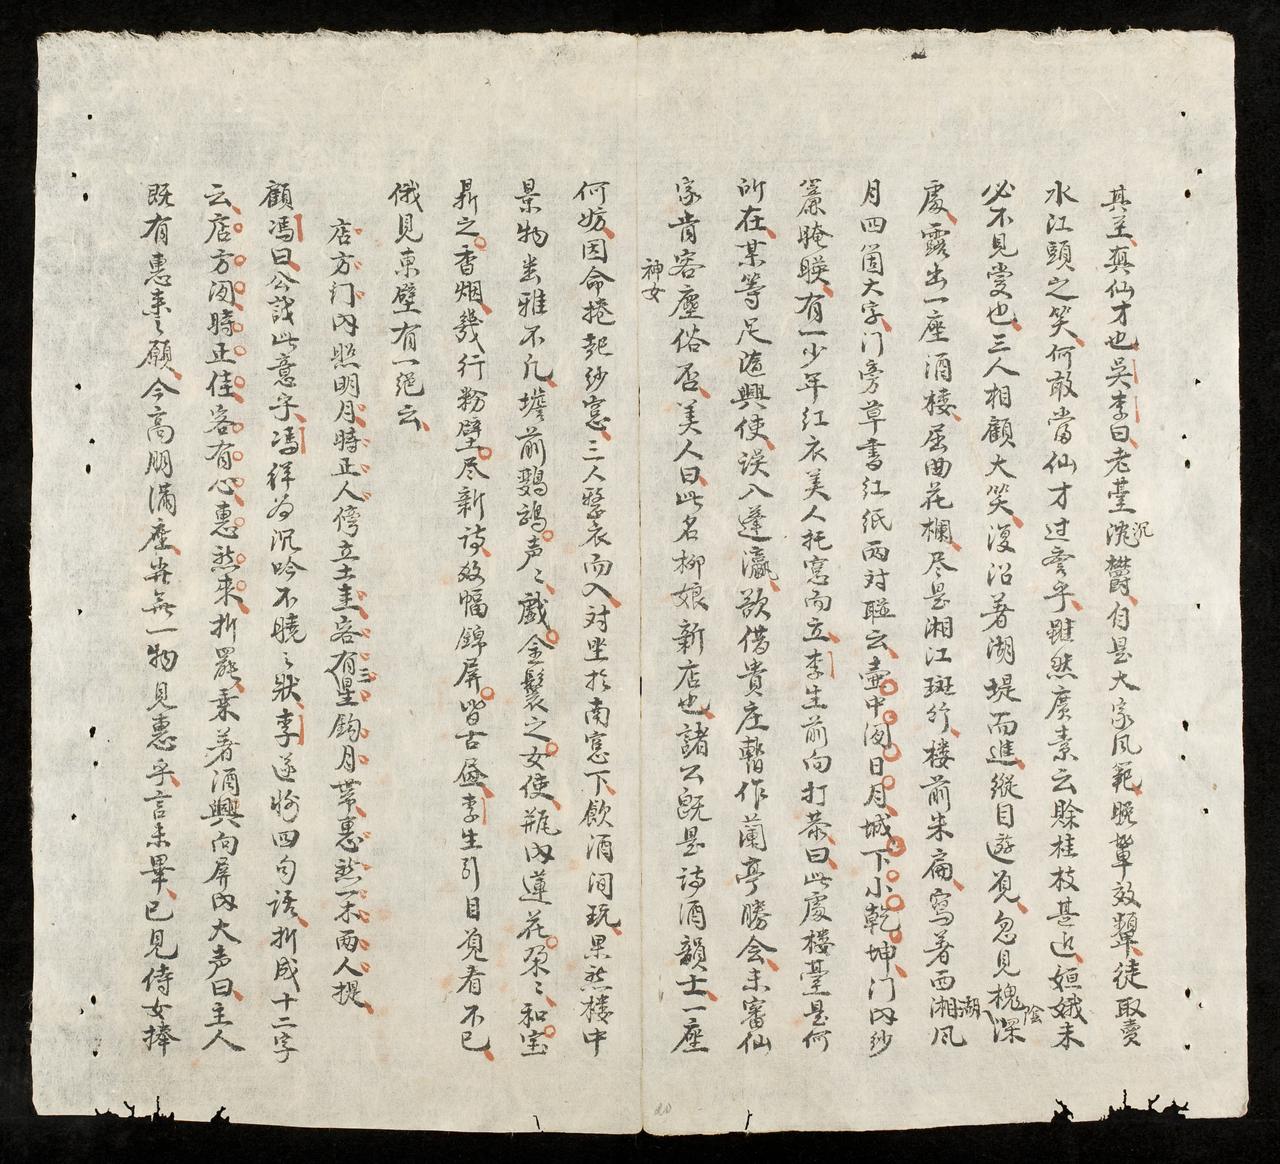 其至真仙才也吴李曰老臺沈欝自是大家风範晚輩效顰徒取賣
水江頭之笑何敢當仙才过誉乎雖然广寒云賒桂枝甚近姮娥未
必不見愛也三人相顧大笑復沿著湖堤而進縱目遊覓忽見槐深
處露出一座酒楼屈曲花欄尽是湘江斑竹楼前朱扁寫著西湘风
月四箇大字门旁草書红纸两对聮云壶中闲日月城下小乾坤门内纱
簾晻暎有一少年红衣美人托窓而立李生前向打恭曰此處楼臺是何
所在某等足随興使误入蓬瀛欲借貴庄暫作蘭亭勝会未審仙
家肯容塵俗否美人曰此名柳娘新店也諸公既是诗酒韻士一座
神女
何妨因命捲起纱窓三人整衣而入对坐於南窓下飲酒间玩果然楼中
景物幽雅不凡簷前鸚鵡声〻戲金鬟之女使瓶内蓮花朶〻和宝
鼎之香烟幾行粉壁尽新诗数幅錦屏皆古畫李生引目覓看不已
俄見東壁有一绝云
店方门内照明月時正人傍立土圭客有三星鈎月帯惠然一木两人提
顧馮曰公识此意乎馮徉为沉吟不曉之狀李遂将四句语折成十二字
云店方闲時正佳客有心惠然来折罷乗着酒興向屏内大声曰主人
既有惠来之願今高朋滿座并無一物見惠乎言未畢已見侍女捧